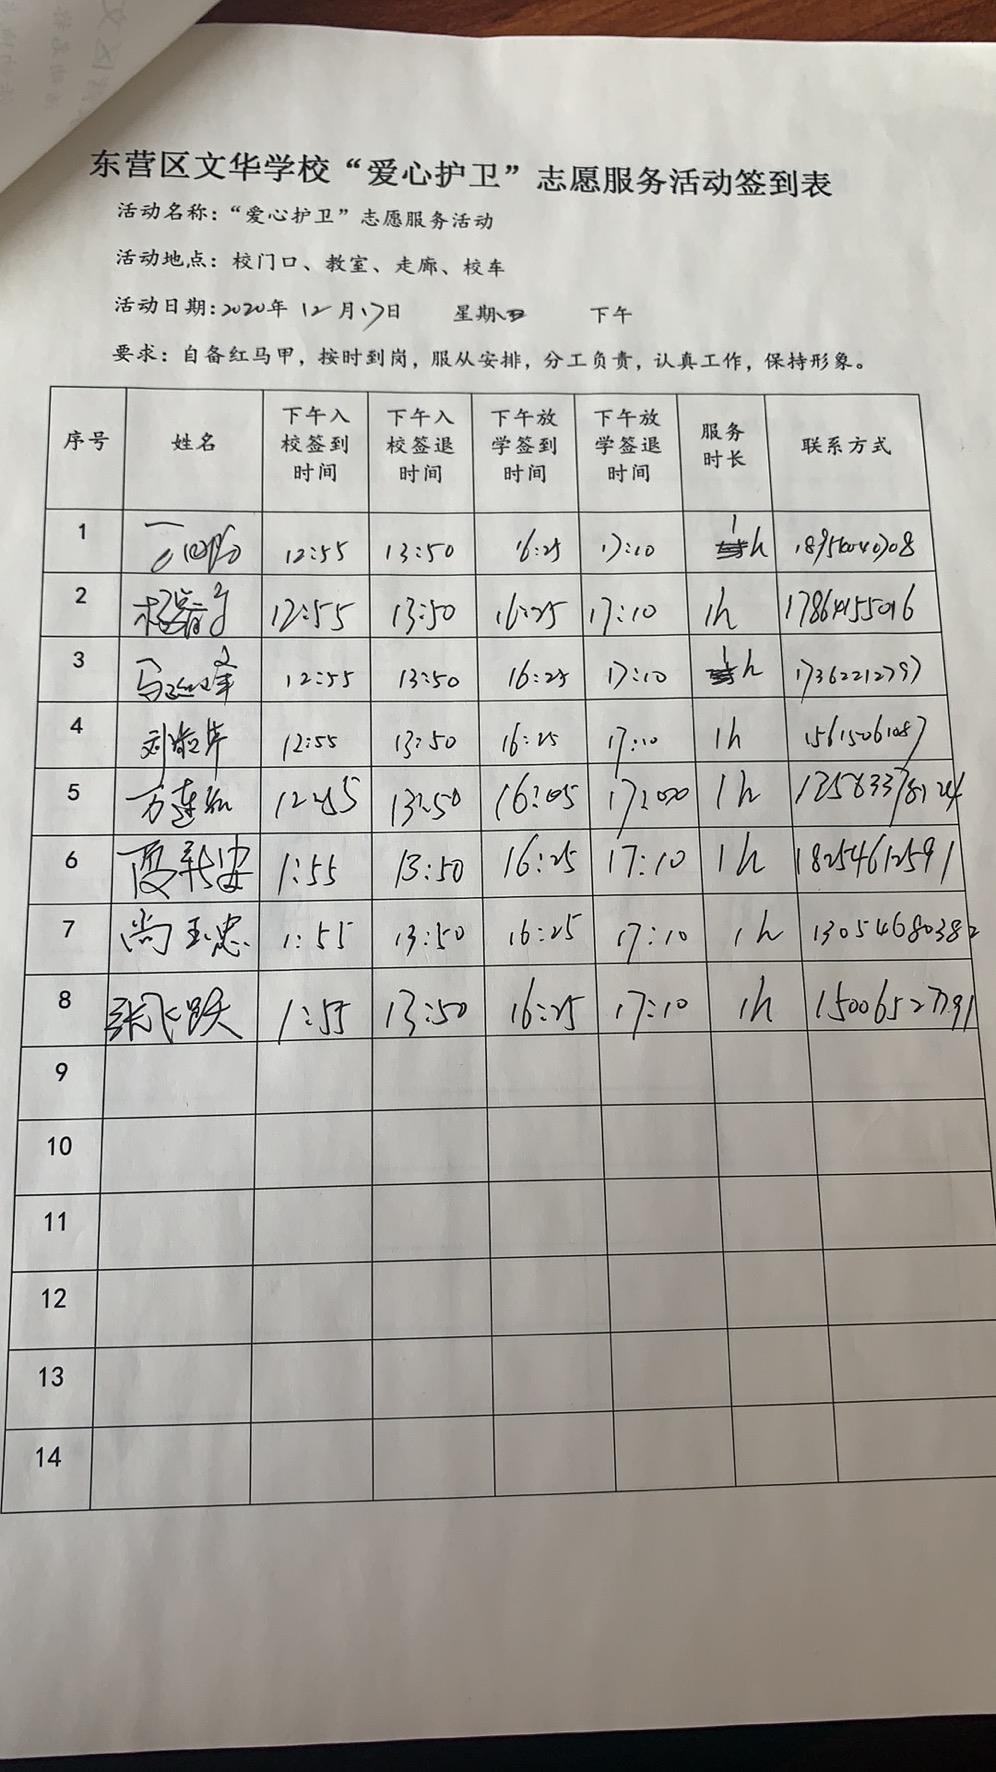 东营区文华学校“爱心护卫”志愿服务活动签到表
活动名称：“爱心护卫”志愿服务活动
活动地点：校门口、教室、走廊、校车
活动日期：2020年 12月17日 星期 下午
要求：自备红马甲，按时到岗，服从安排，分工负责，认真工作，保持形象。
序号 姓名 下午入校签到时间 下午入校签退时间 下午放学签到时间 下午放学签退时间 服务时长 联系方式
1 12:55 13:50 16:25 17:10 1h
2 12:55 13:50 16:25 17:10 1h
3 12:55 13:50 16:25 17:10 1h 17362212797
4 12:55 13:50 16:25 17:10 1h
5 13:50 1h
6 1:55 13:50 16:25 17:10 1h 18254612591
7 尚玉忠 1:55 13:50 16:25 17:10 1h 13054680382
8 张飞跃 1:55 13:50 16:25 17:10 1h
9
10
11
12
13
14